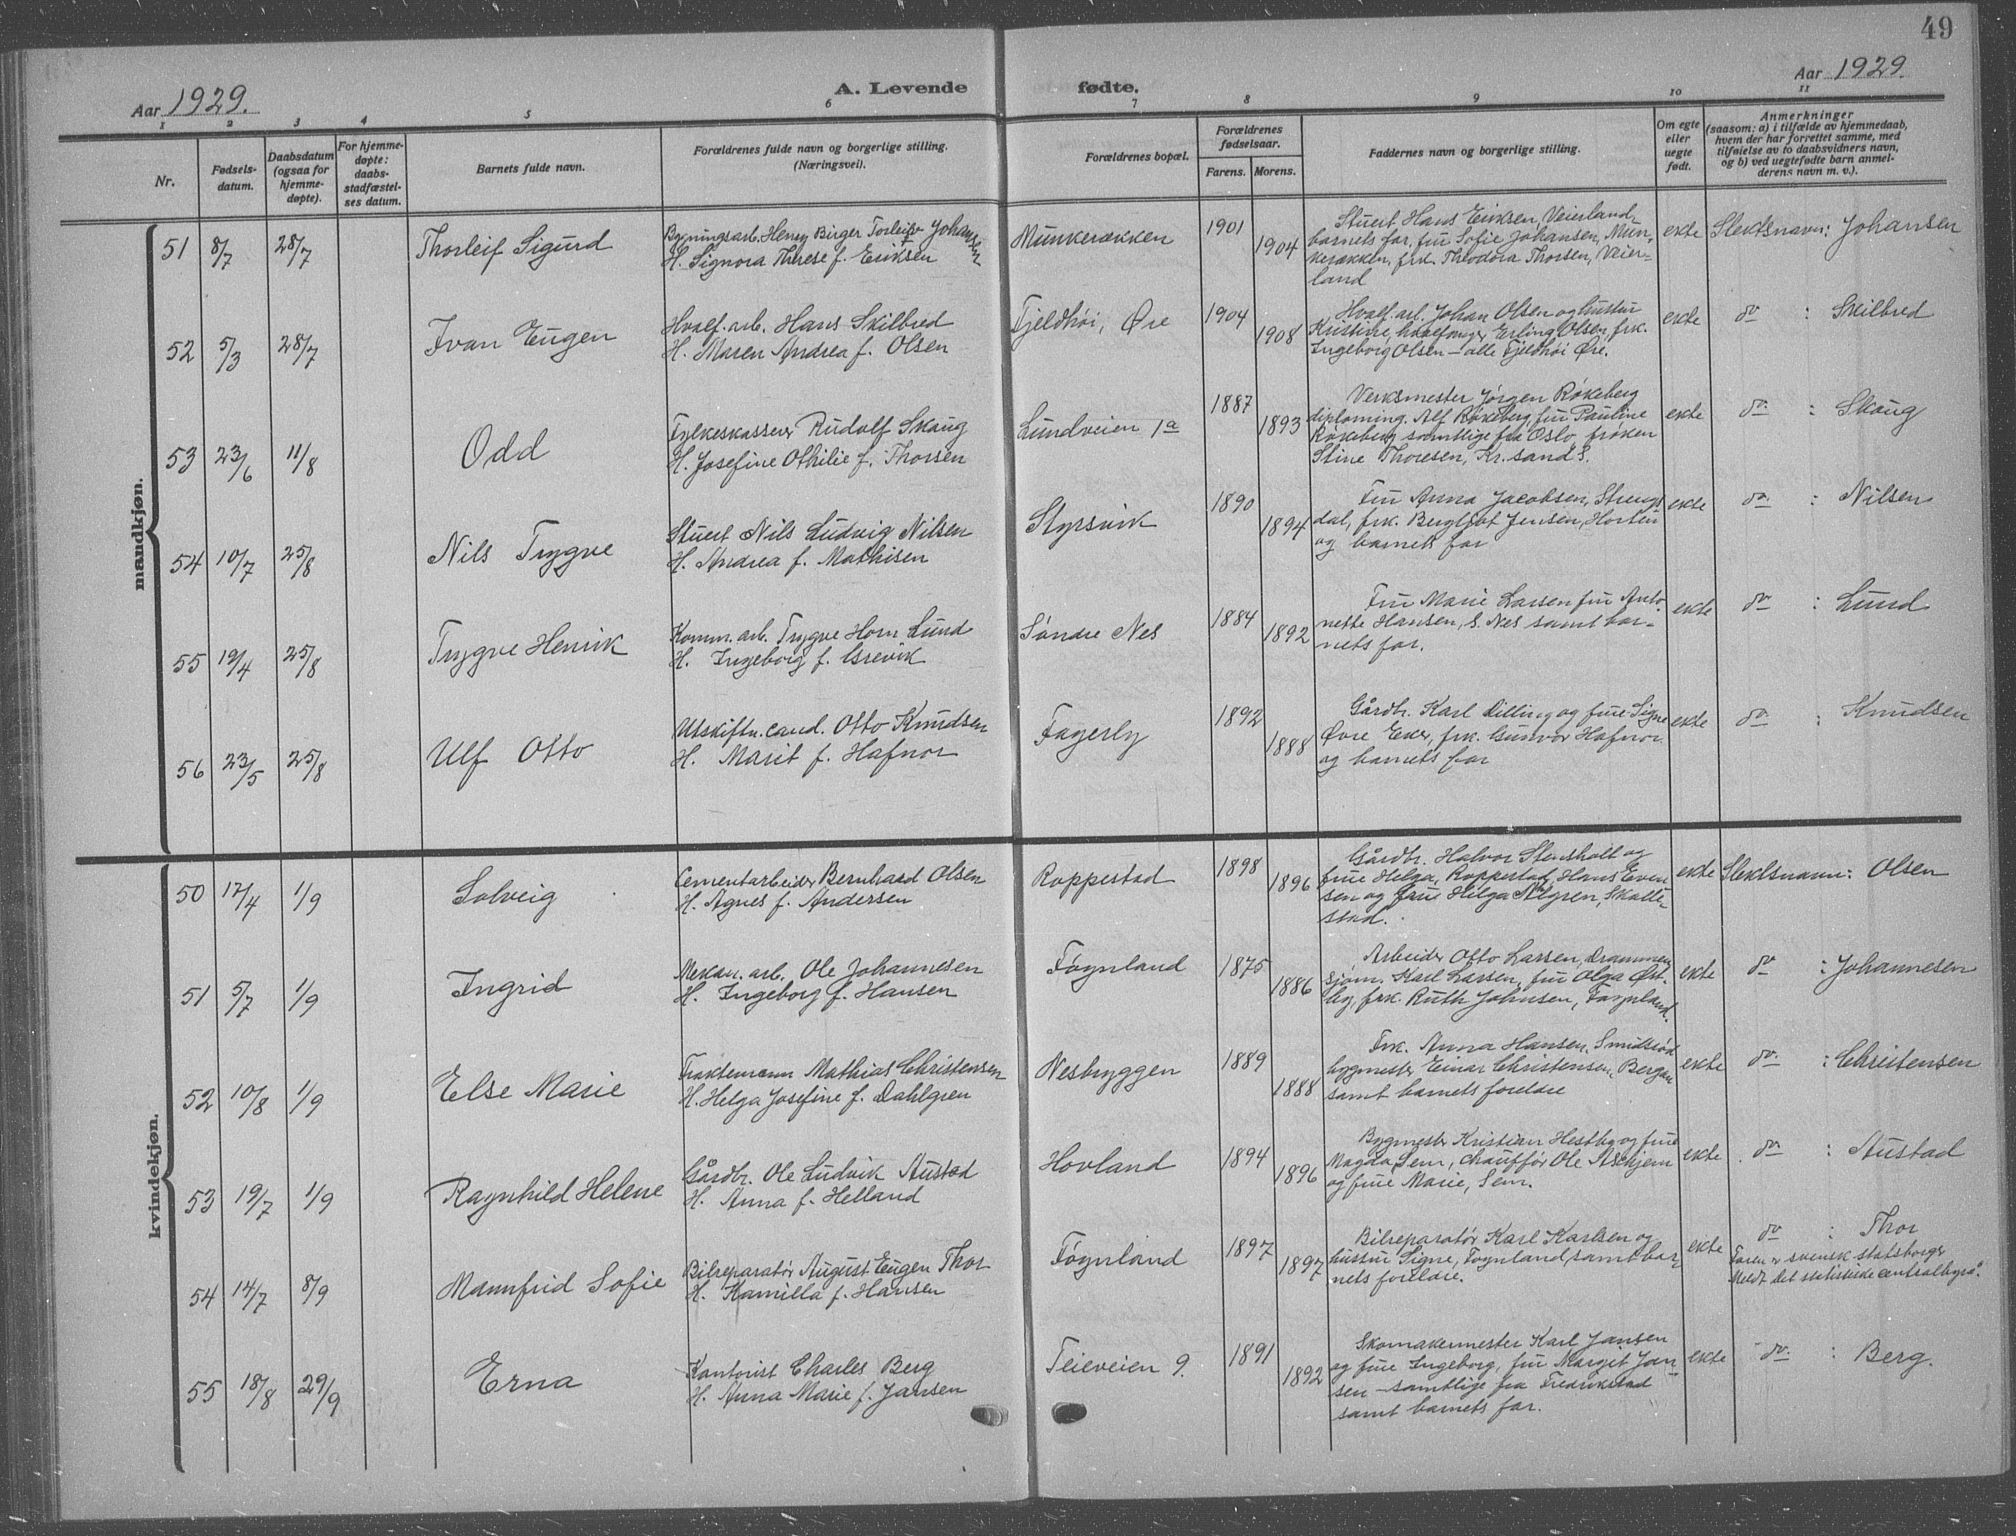 49
Aar 1929.
A. Levende fødte.
Aar 1929.
1 2 3 4 5 6 7 8 9 10 11
Nr.
Fødsels-
datum.
Daabsdatum
(ogsaa for
hjemme-
døpte).
For hjemme-
døpte:
daabs-
stadfæstel-
ses datum.
Barnets fulde navn.
Forældrenes fulde navn og borgerlige stilling.
(Næringsvei).
Forældrenes bopæl.
Forældrenes
fødselsaar.
Farens. Morens.
Faddernes navn og borgerlige stilling.
Om egte
eller
uegte
født.
Anmerkninger
(saasom: a) i tilfælde av hjemmedaab,
hvem der har forrettet samme, med
tilføielse av to daabsvidners navn,
og b) ved uegtefødte barn anmel-
derens navn m. v.).
mandkjøn.
51 8/7 28/7 Thorleif Sigurd
Bygningsarb. Henry Birger Torleif Johansen
H. Signora Therese f. Eriksen
Munkerækken 1901 1904
Stuert Hans Eriksen, Veierland,
barnets far, fru Sofie Johansen, Mun-
kerækken, frk. Theodora Thorsen, Veier-
land
ekte Slektsnavn: Johansen
52 5/3 28/7 Ivan Eugen
Hvalf. arb. Hans Skilbred
H. Maren Andrea f. Olsen
Fjeldhøi, Øre 1904 1908
Hvalf. arb. Johan Olsen og hustru
Kristine, hvalfanger Erling Olsen, frk.
Ingeborg Olsen - alle Fjeldhøi Øre.
ekte do : Skilbred
53 23/6 11/8 Odd
Fylkeskasserer Rudolf Skaug
H. Josefine Othilie f. Thorsen
Lundveien 1a 1887 1893
Verksmester Jørgen Røkeberg
diploming. Alf Røkeberg, fru Pauline
Røkeberg samtlige fra Oslo, frøken
Stine Thoresen, Kr. sand S.
ekte do : Skaug
54 10/7 25/8 Nils Trygve
Stuert Nils Ludvig Nilsen
H. Andrea f. Mathisen
Styrsvik 1890 1894
Fru Anna Jacobsen, Strengs
dal, frk. Bergljot Jensen, Horten
og barnets far
ekte do : Nilsen
55 19/4 25/8 Trygve Henrik
Komm. arb. Trygve Horn Lund
H. Ingeborg f. Grevik
Søndre Nes 1884 1892
Fru Marie Larsen fru Anto-
nette Hansen, S. Nes samt bar-
nets far.
ekte do : Lund
56 23/5 25/8 Ulf Otto
Utskiftn. cand. Otto Knudsen
H. Marit f. Hafnor
Fagerly 1892 1888
Gårdbr. Karl Dilling og frue Signe
Øvre Eker, frk. Gunvor Hafnor
og barnets far
ekte do : Knudsen
kvindekjøn.
50 17/4 1/9 Solveig
Cementarbeider Bernhard Olsen
H. Agnes f. Andersen
Roppestad 1898 1896
Gårdbr. Halvor Stensholt og
frue Helga, Roppestad, Hans Even
sen og frue Helga Algren, Skalle-
stad.
ekte Slektsnavn: Olsen
51 5/7 1/9 Ingrid
Mekan. arb. Ole Johannesen
H. Ingeborg f. Hansen
Føynland 1875 1886
Arbeider Otto Larsen, Drammen,
sjøm. Karl Larsen, fru Olga Øst-
by, frk. Ruth Johnsen, Føynland.
ekte do : Johannesen
52 10/8 1/9 Else Marie
Fraktemann Mathias Christensen
H. Helga Josefine f. Dahlgren
Nesbryggen 1889 1888
Frk. Anna Hansen, Smidsrød
bygmester Einar Christensen, Bergan
samt barnets foreldre
ekte do : Christensen
53 19/7 1/9 Ragnhild Helene
Gårdbr. Ole Ludvik Austad
H. Anna f. Helland
Hovland 1894 1896
Bygmester Kristian Hestby og frue
Magda, Sem, chauffør Ole Askjem
og frue Marie, Sem.
ekte do : Austad
54 14/7 8/9 Mannfrid Sofie
Bilreparatør August Eugen Thor
H. Kamilla f. Hansen
Føynland 1897 1897
Bilreparatør Karl Karlsen og
hustru Signe, Føynland, samt bar-
nets foreldre.
ekte do : Thor
Faren er svensk statsborger
Meldt det statistiske centralbyrå.
55 18/8 29/9 Erna
Kontorist Charles Berg
H. Anna Marie f. Jansen
Teieveien 9. 1891 1892
Skomakermester Karl Jansen
og frue Ingeborg, fru Margit Jan-
sen - samtlige fra Fredrikstad
samt barnets far.
ekte do : Berg.